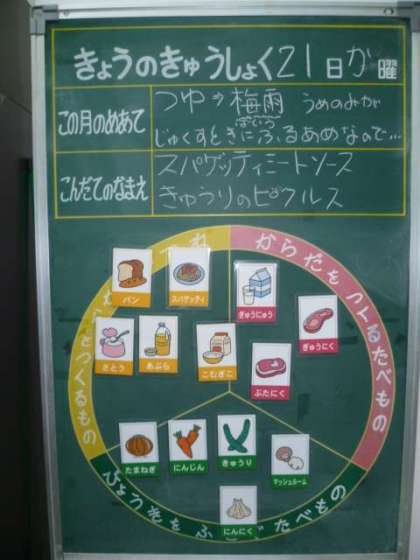 きょうのきゅうしょく 21日 か 曜
この月のめあて
つゆ→梅雨 うめのみが
ばいう
じゅくすときにふるあめなので…
こんだてのなまえ
スパゲッティミートソース
きゅうりのピクルス
からだをつくるたべもの
パン
スパゲッティ
ぎゅうにゅう
ぎゅうにく
さとう
あぶら
こむぎこ
ぶたにく
をつくるもの
たまねぎ
にんじん
きゅうり
マッシュルーム
にんにく
びょうきをふ
たべもの